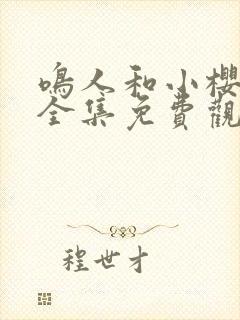 鳴人和小櫻
全集免費觀
程世才